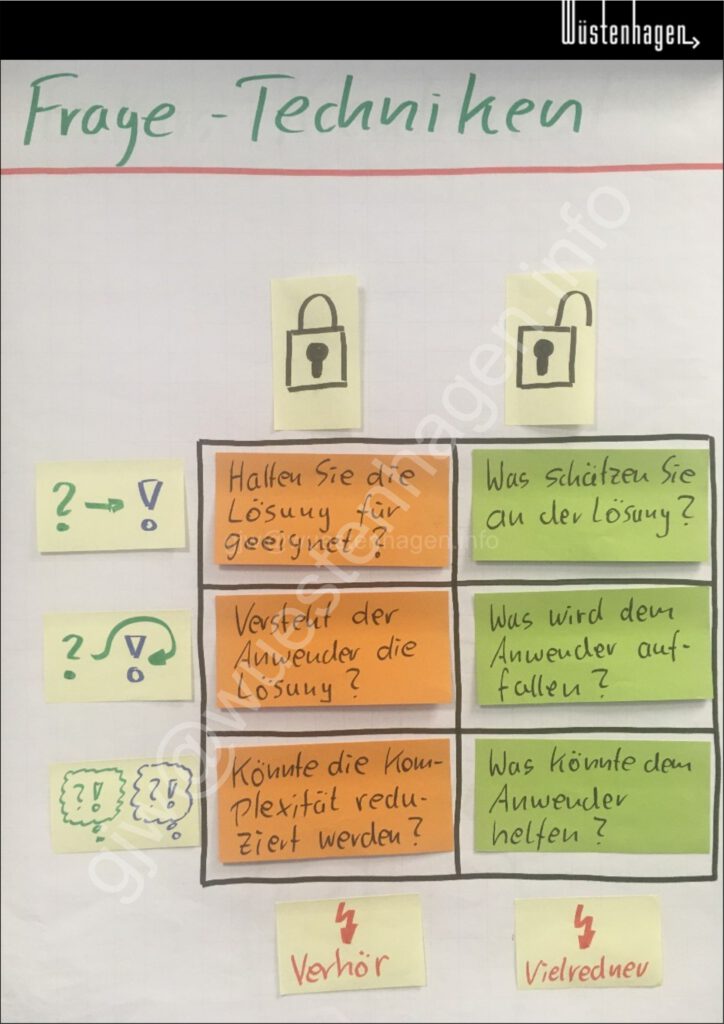 Wüstenhagen
Frage - Techniken
? → !
Halten Sie die
Lösung für
geeignet?
Was schätzen Sie
an der Lösung?
? !
Versteht der
Anwender die
Lösung?
Was wird dem
Anwender auf-
fallen?
?! ?!
Könnte die Kom-
plexität redu-
ziert werden?
Was könnte dem
Anwender
helfen?
Verhör
Vielredner
gjw@wuestenhagen.info
gjw@wuestenhagen.info